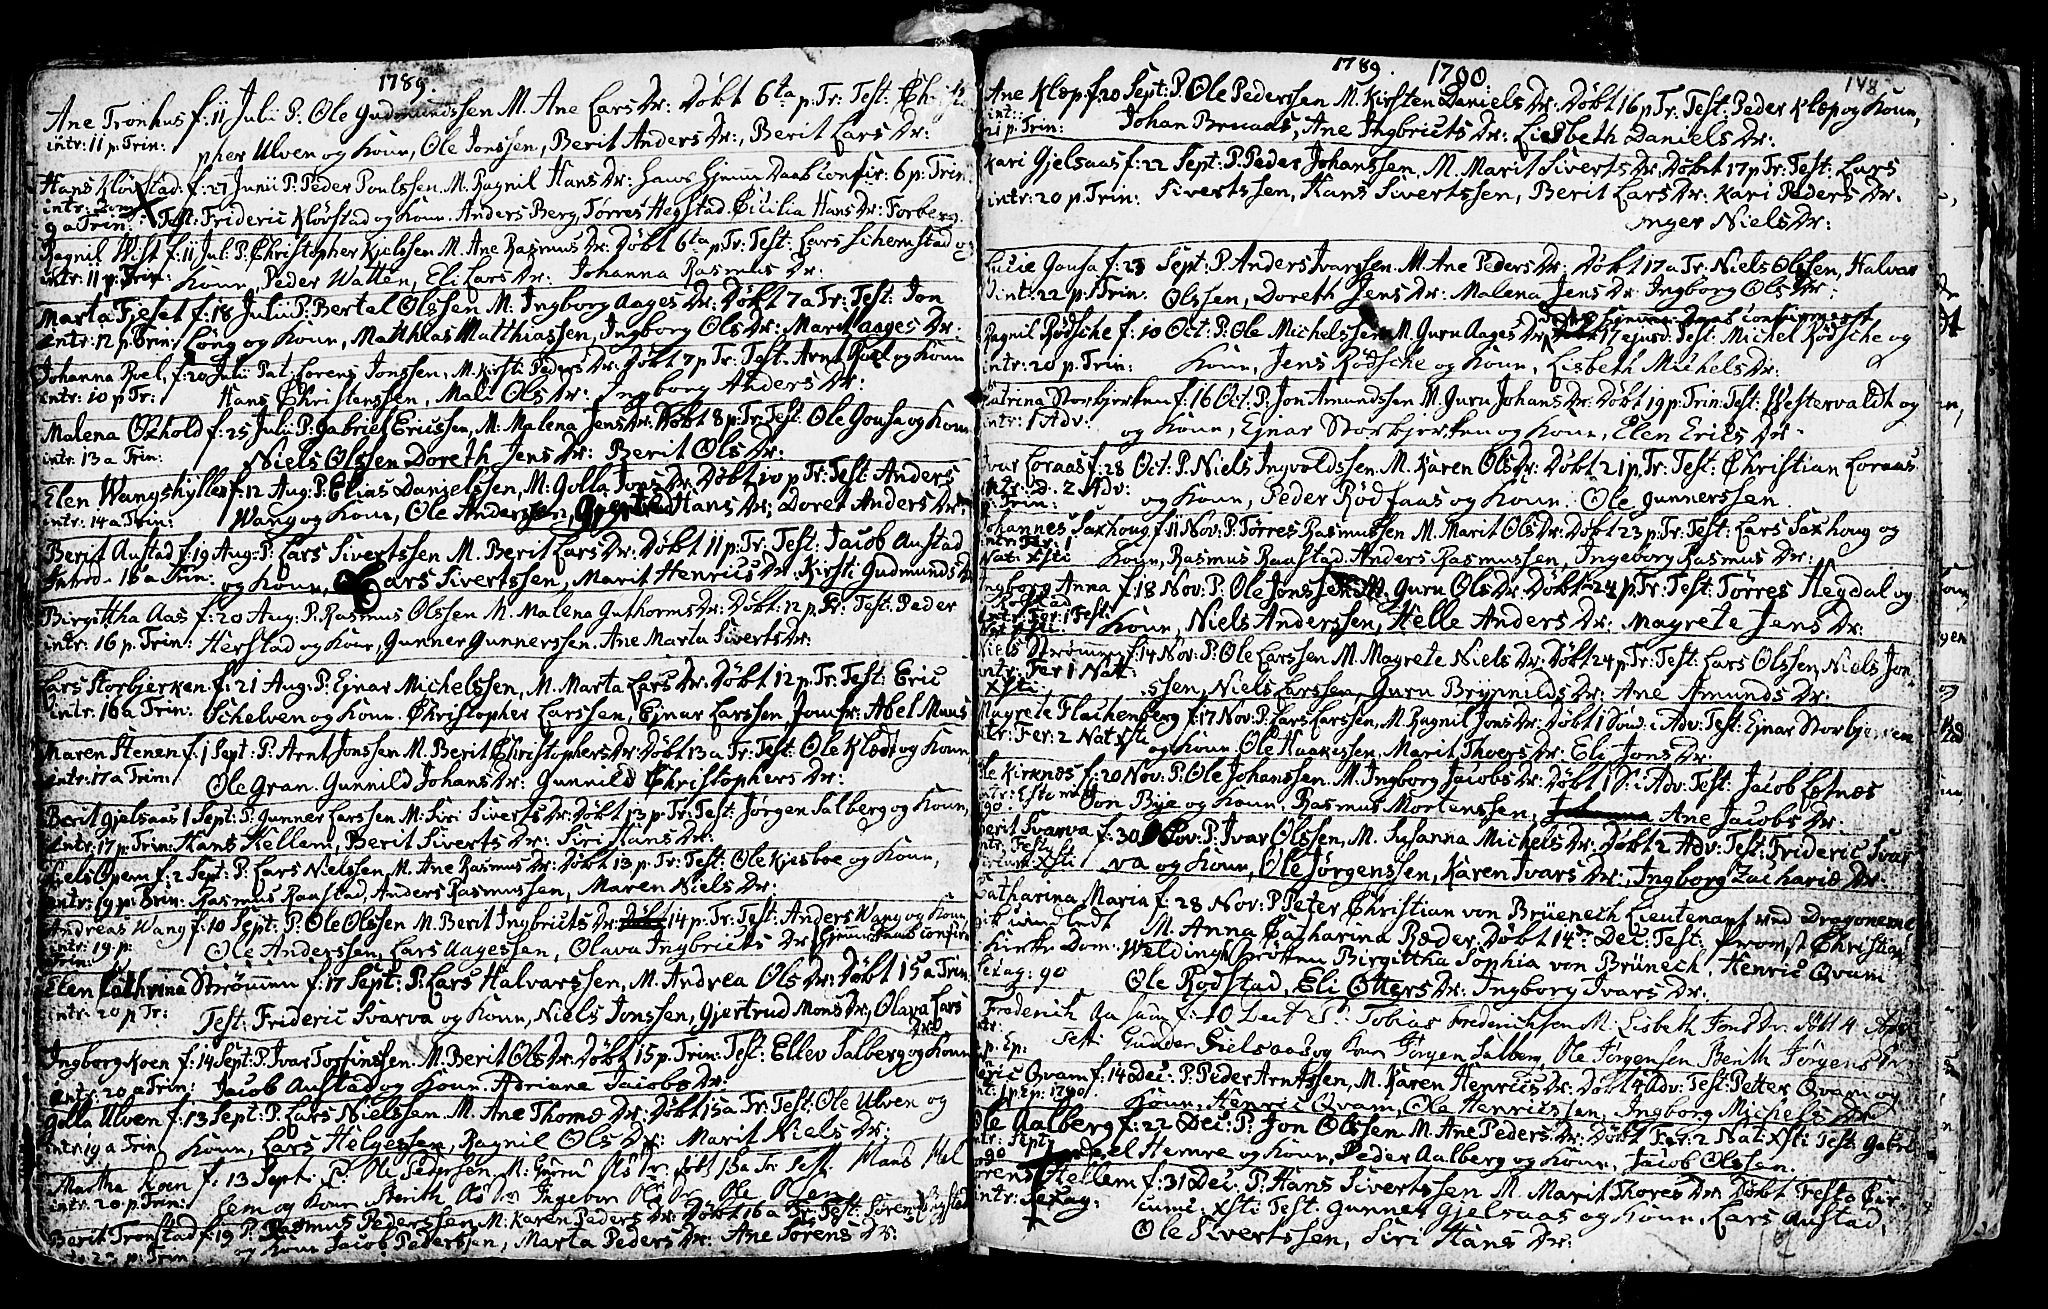 1789.
Ane Tronhus f: 11 Julii P. Ole Gudmundssen M. Ane Lars Dr: Døbt 6ta p: Tr: Test:
intr: 11 p: Trin: pher Ulven og Koun, Ole Jonssen, Berit Anders Dr:, Berit Lars Dr:
Hans Kløvstad f: 27 Junii P: Peder Poulssen M. Ragnil Hans Dr: Daab confir: 6 p: Trin:
intr: 9 a Trin: Test: Frideric Kløvstad og Koun. Anders Berg, Tørres Hegstad. Cicilia Hans Dr: Forberg
Ragnil Wist f: 11 Jul: P: Christopher Kjelssen M. Ane Rasmus Dr: Døbt 6ta p: Tr: Test: Lars Schemstad og
intr: 11 p: Trin: Koun, Peder Watten, Eli Lars Dr: Johanna Rasmus Dr:
Marta Fjeset f: 18 Julii P: Bertel Olssen M: Ingborg Aages Dr: Døbt 7 a Tr: Test: Jon
intr: 12 p: Trin: Løng og Koun, Matthias Matthiassen, Ingborg Ols Dr: Marit Aages Dr:
Johanna Roel, f: 20 Julii Pat: Lorens Jonssen, M. Kirsti Peders Dr: Døbt 7 p Tr: Test. Arnt Roel og Koun
intr: 10 p Tr: Hans Christenssen, Mali Ols Dr: Ingborg Anders Dr:
Malena Oxhold f: 25 Julii P: Gabriel Ericssen, M: Malena Jens Dr: Døbt 8 p: Tr: Test: Ole Gousa og Koun
intr: 13 a Trin: Niels Olssen Doreth Jens Dr: Berit Ols Dr:
Elen Wangshyller f: 12 Aug: P: Elias Danielssen, M: Golla Jons Dr: Døbt 10 p Tr: Test: Anders
intr: 14 a Trin: Wang og Koun, Ole Anderssen, Gjertrud Hans Dr; Doret Anders Dr:
Berit Austad f: 19 Aug: P: Lars Sivertssen M. Berit Lars Dr: Døbt 11 p: Tr: Test: Jacob Austad
Introd. 15 a Trin: og Koun, Lars Sivertssen, Marit Henrics Dr: Kirsti Gudmunds Dr
Birgittha Aas f: 20 Aug: P: Rasmus Olssen M. Malena Guthorms Dr: Døbt: 12 p Tr: Test: Peder
intr: 16 p: Trin: Herstad og Koun, Gunner Gunnerssen. Ane Marta Siverts Dr:
Lars Storbjerken f: 21 Aug: P: Ejnar Michelssen, M. Marta Lars Dr: Døbt 12 p: Tr: Test: Eric
intr: 16 a Trin: Schelven og Koun. Christopher Larssen, Ejnar Larssen Jomfr: Abel Muus
Maren Stenen f: 1 Sept: P: Arnt Jonssen M. Berit Christophers Dr: Døbt 13 a Tr: Test: Ole Klæt og Koun,
intr: 17 a Trin: Ole Gran. Gunnild Johans Dr: Gunnild Christophers Dr:
Berit Gjelsaas 1 Sept: P: Gunner Larssen M. Siri Siverts Dr: Døbt 13 p: Tr: Test: Jørgen Salberg og Koun,
intr: 17 p: Trin: Hans Hellem, Berit Siverts Dr: Siri Hans Dr:
Niels Opem f: 2 Sept: P: Lars Nielssen M. Ane Rasmus Dr: Døbt 13 p: Tr: Test: Ole Kjesboe og Koun,
intr: 19 p: Trin: Rasmus Raustad, Anders Rasmussen, Maren Niels Dr:
Andreas Wang f: 10 Sept: P: Ole Olssen M. Berit Ingbricts Dr: 14 p: Tr: Test: Anders Wang og Koun,
intr: 19 p: Trin: Ole Anderssen, Lars Aagessen, Olava Ingbricts Dr:
Elen Cathrina Strømen f: 17 Sept: P: Lars Halvarssen, M. Andrea Ols Dr: Døbt 15 a Trin:
intr: 20 p Tr: Test: Frideric Svarva og Koun, Niels Jonssen, Gjertrud Mons Dr:, Olava Lars Dr:
Ingborg Koen f: 14 Sept: P: Ivar Torfinssen. M. Berit Ols Dr: Døbt 15 p: Trin: Test: Ellev Salberg og Koun
intr: 20 a Trin: Jacob Austad og Koun. Adriane Jacobs Dr:
Golla Ulven f: 13 Sept: P: Lars Nielssen. M. Ane Thomæ Dr: Døbt 15 a Tr: Test: Ole Ulven og
intr: 19 a Trin: Koun, Lars Helgessen, Ragnil Ols Dr: Marit Niels Dr:
Martha Koen f: 13 Sept. P: Ole Pedersen, M: Guru Ols Dr: døbt 15 a Tr: Test: Hans Hel
intr: 20 p: Trin: lem og Koun Berith Ols Dr Ingebor Ols Dr. Ole Olsen
Berit Tronstad f: 19 P: Rasmus Pederssen, M. Karen Peders Dr: Døbt 16 a Tr: Test: Søren
22 p: Trin: og Koun Jacob Pederssen, Marta Peders Dr: Ane Sørens Dr:
1789. 1790. 148
Ane Klep f: 20 Sept: P. Ole Pederssen M. Kirsten Daniels Dr: Døbt 16 p Tr: Test: Peder Klep og Koun,
intr: 21 p: Trin: Johan Bruaas, Ane Ingbricts Dr: Liesbeth Daniels Dr:
Kari Gjelsaas f: 22 Sept: P: Peder Johanssen, M. Marit Siverts Dr: Døbt 17 p Tr: Test: Lars
intr: 20 p: Trin: Sivertssen, Hans Sivertssen, Berit Lars Dr: Kari Peders Dr.
Inger Niels Dr:
Lucie Gousa f: 23 Sept: P. Anders Ivarssen. M. Ane Peders Dr: Døbt 17 a Tr: Niels Olssen, Halvar
intr: 22 p: Trin: Olssen, Doreth Jens Dr: Malena Jens Dr: Ingborg Ols Dr:
Ragnil Rødsche f: 10 Oct: P. Ole Michelssen M. Guru Aages Dr: 17 ejusd: Test: Michel Rødsche og
intr: 20 p: Trin: Koun, Jens Rødsche og Koun, Lisbeth Michels Dr:
Catrina Storbjerken f: 16 Oct: P. Jon Amundssen M. Guru Johans Dr: Døbt 19 p: Trin: Test: Westervaldt og
intr: 1 Adv: og Koun, Ejnar Storbjerken og Koun, Elen Erics Dr:
Ivar Loraas f: 28 Oct: P. Niels Ingvoldssen. M. Karen Ols Dr: Døbt 21 p: Tr: Test: Christian Loraas
2 Adv: og Koun, Peder Rødsaas og Koun. Ole Gunnerssen
Johannes Saxhoug f: 11 Nov: P: Tørres Rasmussen M. Marit Ols Dr: Døbt 23 p: Tr: Test: Lars Saxhoug og
Nat: Xsti Koun, Rasmus Raustad. Anders Rasmussen, Ingeborg Rasmus Dr:
Ingborg Anna f: 18 Nov: P: Ole Jonssen M. Guru Ols Dr: Døbt 24 p: Tr: Test: Tørres Hegdal og
Koun, Niels Anderssen, Helle Anders Dr: Magrete Jens Dr:
Niels Strømen f: 14 Nov: P: Ole Larssen M. Magrete Niels Dr: Døbt 24 p: Tr: Test: Lars Olssen, Niels Jon-
intr: Fer 1 Nat: Xsti ssen, Niels Larssen, Guru Brynnilds Dr: Ane Amunds Dr:
Magrete Flachenberg f: 17 Nov: P: Lars Larssen, M. Ragnil Jons Dr: Døbt 1 Sønd: i Adv: Test: Ejnar Storbjerken
intr: Fer: 2 Nat Xsti og Koun. Ole Haakessen, Marit Thoers Dr: Eli Jons Dr:
Ole Kirknæs f: 20 Nov: P: Ole Johanssen. M. Ingborg Jacobs Dr: Døbt 1 S: i Adv: Test: Jacob Letnæs
Jon Bye og Koun, Rasmus Mortenssen, Johanna Ane Jacobs Dr:
Berit Svarva f: 30 Nov: P: Ivar Olssen, M. Susanna Michels Dr: Døbt 2 Adv: Test: Frideric Svar
intr: Festo Circum: Xsti va og Koun, Ole Jørgenssen, Karen Ivars Dr: Ingborg Zachariæ Dr:
Catharina Maria f: 28 Nov: P Peter Christian von Brüenech Lieutenant ved Dragonerne
M. Anna Catharina Ræder, Døbt 14de Dec: Test: Provst Christian
Kirke Dom: Weldingh, Frøtten Birgittha Sophia von Brünech. Henric Qvam
Sexag: 90 Ole Rodstad, Eli Otters Dr: Ingborg Ivars Dr:
Frederik f: 10 Dect P: Tobias Frederichsen M. Lisbeth Jons Dr. døbt 4
p. Ep: Test: Gunder Fielsaas og Koun Jørgen Salberg, Ole Jørgensen Berith Jørgens Dr
Eric Qvam f: 14 Dec: P: Peder Arntssen, M. Karen Henrics Dr: Døbt 4 Adv: Test: Petter Qvam og
1790. Koun, Henric Qvam, Ole Henricssen, Ingborg Michels Dr
Ole Aalberg f: 22 Dec: P: Jon Olssen M. Ane Peders Dr: Døbt Fer: 2 Nat: Xsti Test: Gabri
90 el Hemre og Koun, Peder Aalberg og Koun, Jacob Olssen.
Hellem f: 31 Dec: P: Hans Sivertssen M. Marit Thores Dr: Døbt Festo Cir-
intr: Sexag: cumc: Xsti Test: Gunner Gjelsaas og Koun, Lars Austad,
Ole Sivertssen, Siri Hans Dr: